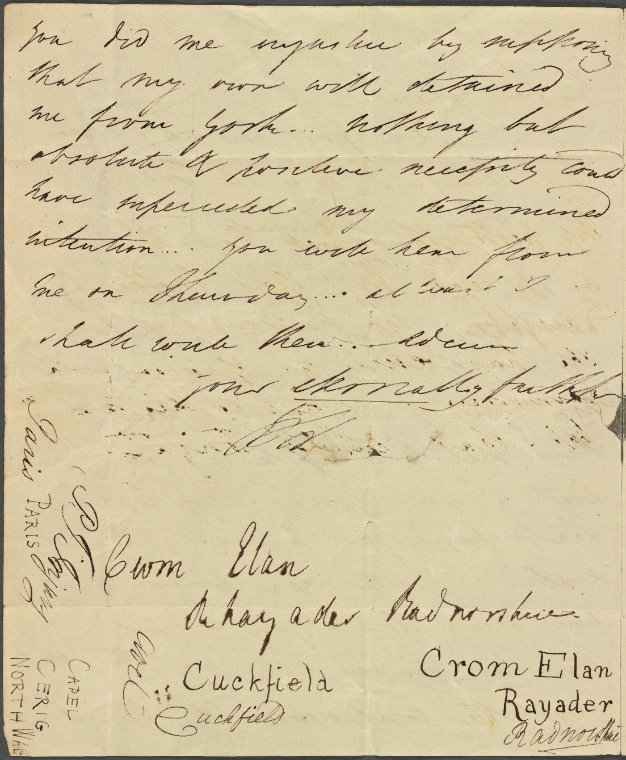 You did me injustice by supposing
that my own will detained
me from York... nothing but
absolute & positive necessity could
have superseded my determined
intention... you will hear from
me on Thursday... at least I
shall write then. Adieu
your eternally faithful
Cwm Elan
Rhayader Radnorshire
Cuckfield
Cuckfield
Crom Elan
Rayader
Radnorshire
Paris PARIS
CAPEL
CERIG
NORTH WAL
Capel